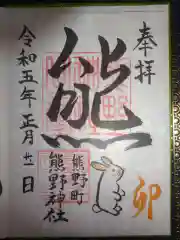 奉拝
卯
熊
熊野町
熊野神社
令和五年正月廿一日